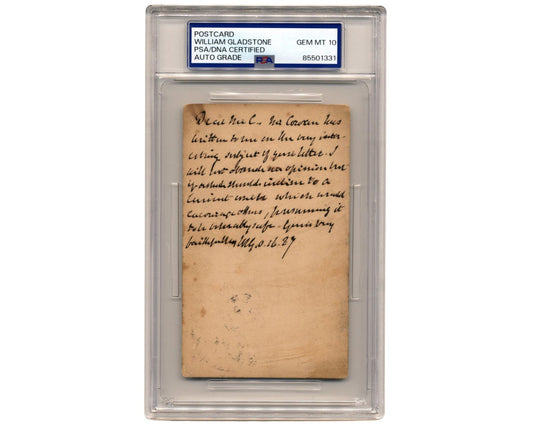 POSTCARD
WILLIAM GLADSTONE
PSA/DNA CERTIFIED
AUTO GRADE
GEM MT 10
85501331
PSA
Dear Mr C. Mr Cowan has
written to me on the very inter-
esting subject of your letter. I
will not
opinion but
should incline to a
which would
encourage others, presuming it
to be tolerably safe. Yours very
faithfully WEG